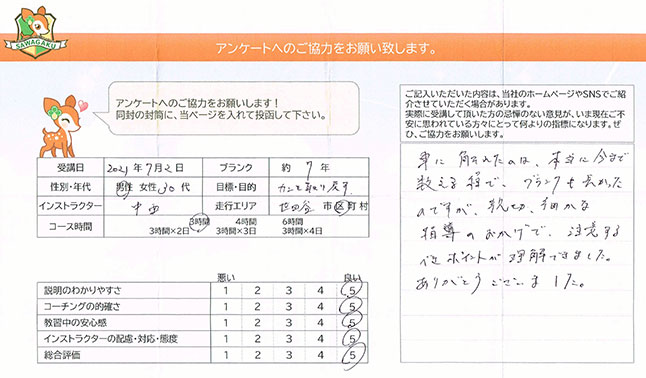 SAWAGAKU
アンケートへのご協力をお願い致します。
アンケートへのご協力をお願いします！
同封の封筒に、当ページを入れて投函して下さい。
受講日 2021年7月2日 ブランク 約 7 年
性別・年代 男性 女性 30代 目標・目的 カンを取り戻す
インストラクター 中西 走行エリア 世田谷 市区町村
コース時間 3時間 4時間 6時間
3時間×2日 3時間×3日 3時間×4日
悪い 良い
説明のわかりやすさ 1 2 3 4 5
コーチングの的確さ 1 2 3 4 5
教習中の安心感 1 2 3 4 5
インストラクターの配慮・対応・態度 1 2 3 4 5
総合評価 1 2 3 4 5
ご記入いただいた内容は、当社のホームページやSNSでご紹
介させていただく場合があります。
実際に受講して頂いた方の忌憚のない意見が、いま現在ご不
安に思われている方々にとって何よりの指標になります。ぜ
ひ、ご協力をお願いします。
車に触れたのは、本当に今まで
数える程で、ブランクも長かった
のですが、親切、細かな
指導のおかげで、注意する
べきポイントが理解できました。
ありがとうございました。